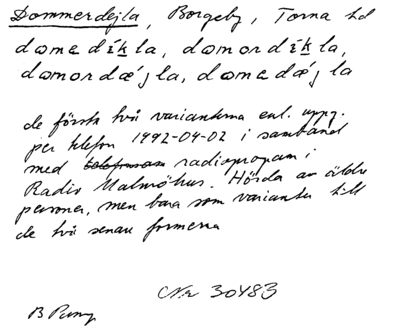 Dommerdejla, Borgeby, Torna hd
domedíkla, domordíkla,
domordǽjla, domedǽjla
de första två varianterna enl. uppg.
per telefon 1992-04-02 i samband
med radioprogram i
Radio Malmöhus. Hörda av äldre
personer, men bara som varianter till
de två senare formerna
Nr 30483
B Pamp